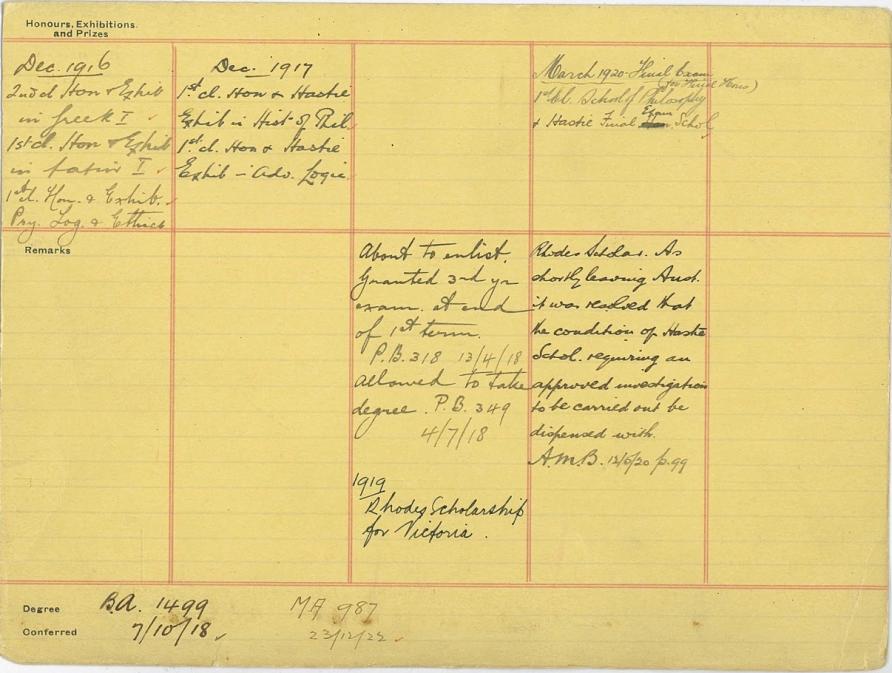 Honours, Exhibitions.
and Prizes
Dec. 1916
2nd cl Hon & Exhib
in Greek I
1st cl. Hon & Exhib
in Latin I
1st cl. Hon. & Exhib.
Psy. Log. & Ethics
Dec. 1917
1st cl. Hon & Hastie
Exhib in Hist of Phil
1st cl. Hon & Hastie
Exhib - Adv. Logic
March 1920 Final Exam
(for Final Hons)
1st Cl. School of Philosophy
Exam
& Hastie Final Schol
Remarks
About to enlist.
Granted 3rd yr
exam. at end
of 1st term.
P.B. 318 12/4/18
allowed to take
degree. P.B. 349
4/7/18
1919
Rhodes Scholarship
for Victoria.
Rhodes Scholar. As
shortly leaving Aust.
it was resolved that
the condition of Hastie
Schol. requiring an
approved investigation
to be carried out be
dispensed with.
A.M.B. p. 99
Degree B.A. 1499 MA 987
Conferred 7/10/18 23/12/22